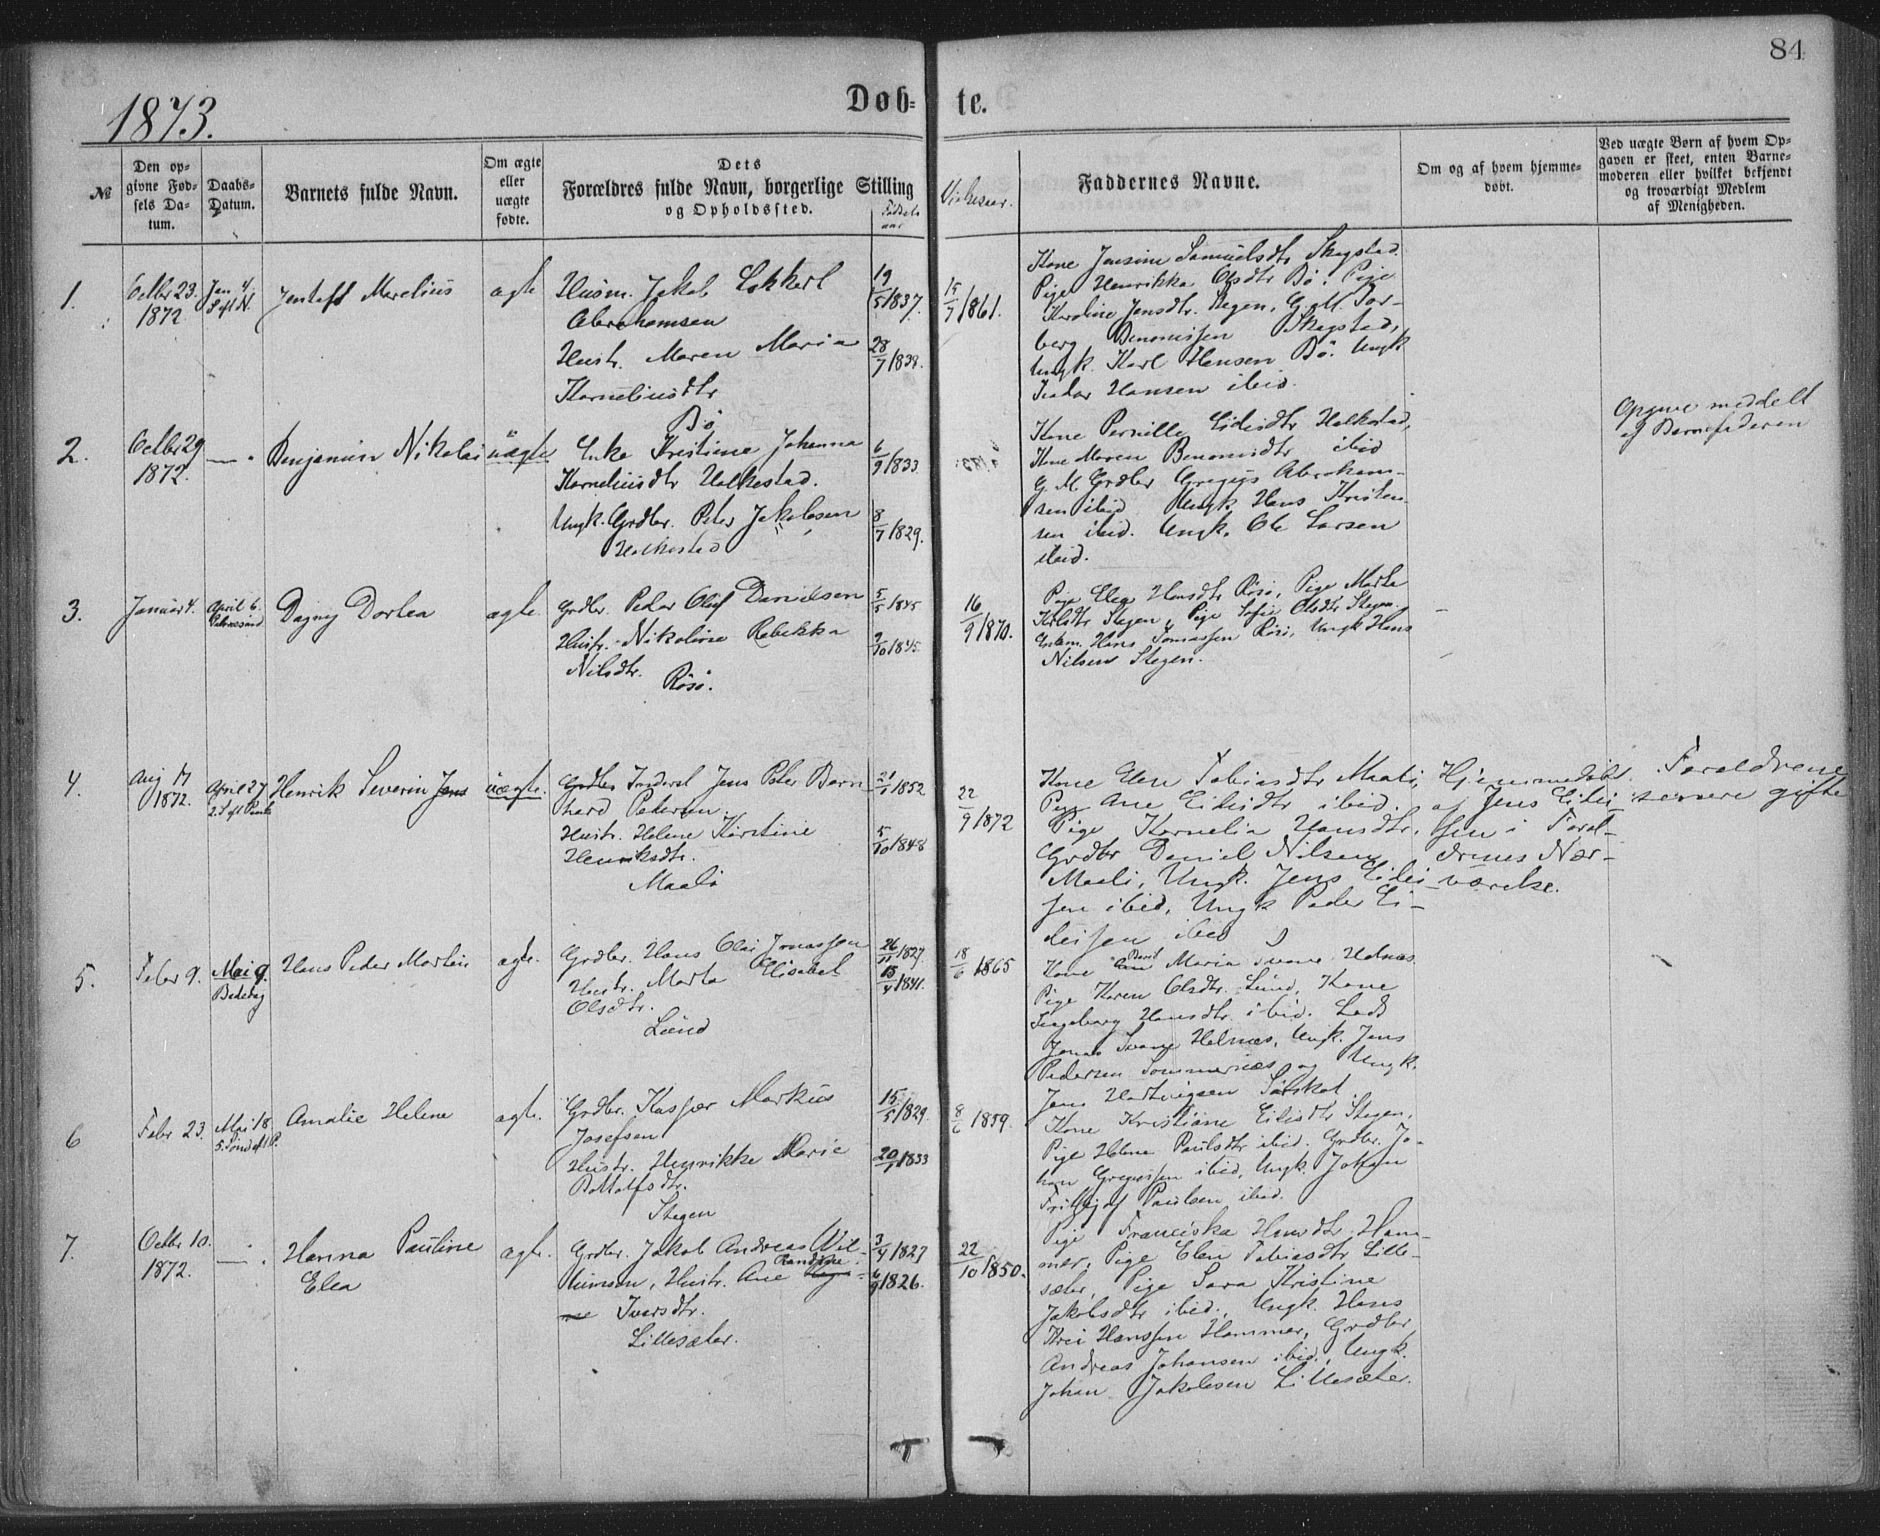 84
1873.
Døb-
te.
№
Den op-
givne Fød-
sels Da-
tum.
Daabs-
Datum.
Barnets fulde Navn.
Om ægte
eller
uægte
fødte.
Dets
Forældres fulde Navn, borgerlige Stilling
og Opholdssted.
Fødsels
aar
Vielsesaar.
Faddernes Navne.
Om og af hvem hjemme-
døbt.
Ved uægte Børn af hvem Op-
gaven er skeet, enten Barne-
moderen eller hvilket bekjendt
og troværdigt Medlem
af Menigheden.
1.
Octbr 23.
1872
Jan 4.
S. eft N.
Marelius
ægte
Husm. Jakob Lokkert
Abrahamsen
Hustr. Maren Maria
Kornelius dtr
Bø
19/5 1837.
28/7 1838.
15/7 1861.
Kone Jensine Samuelsdtr Skogstad.
Pige Henrikka Olsdtr Bø. Pige
Karoline Jensdtr. Stegen, G. M. Tor-
berg Benonissen Skogstad,
Ungk. Karl Hansen Bø. Ungk
Hansen ibid.
2.
Octbr 29
1872.
—
Benjamin Nikolai
uægte
Enke Kristine Johanna
Kornelius dtr Holkestad.
Ungk. Grdbr. Peter Jakobsen
Holkestad
6/9 1833
8/7 1829.
Kone Pernille Eidisdtr Holkestad,
Kone Maren Benonisdtr ibid
G. M. Grdbr Gregus Abraham-
sen ibid. Ungk. Hans Kristen-
sen ibid. Ungk. Ole Larsen
ibid.
Opgave meddelt
af Barnefaderen
3.
Januar 4.
April 6.
Palmesønd
Dagny Dortea
ægte.
Grdbr. Peder Oluf Danielsen
Hustr. Nikoline Rebekka
Nilsdtr.
Røsø.
5/5 1845
9/10 1845.
16/9 1870.
Pige Elea Hansdtr Røsø, Pige Marta
Nilsdtr Stegen, Pige Sofie Olsdtr Stegen.
Enkem. Hans Tomassen Røsø, Ungk Hans
Nilsen Stegen.
4.
Aug 17
1872.
April 27
2. S. eft Paaske
Henrik Severin Jens
uægte.
Grdbr Inderst Jens Peter Bern-
hard Pedersen.
Hustr. Helene Kirstine
Henriksdtr.
Maalø
21/1 1852
5/10 1848
22/9 1872
Kone Elen Tobiasdtr Maalø,
Pige Ane Eidisdtr ibid.
Pige Kornelia Hansdtr,
Grdbr Daniel Nilsen
Maalø, Ungk. Jens Eidis-
sen ibid, Ungk Peder Ei-
disssen ibid
Hjemmedøbt
af Jens Eidis-
sen i Foræl-
drenes Nær-
værelse.
Forældrene
senere gifte
5.
Febr 9.
Mai 9.
Bededag
Hans Peder Martin
ægte.
Grdbr. Hans Olai Jonassen
Hustr. Marta Elisabet
Olsdtr.
Lund
26/11 1827.
13/4 1841.
18/6 1865
Kone Berit Maria Svane Helnæs
Pige Karen Olsdtr. Lund, Kone
Ingeborg Hansdtr. ibid. Lods
Jonas Svane Helnæs, Ungk. Jens
Pedersen Sommernæs og Ungk.
Jens Hartvigsen Sørskot
6
Febr 23.
Mai 18
5. Sønd eft P.
Amalie Helene
ægte.
Grdbr. Kasper Markus
Josefsen
Hustr. Henrikke Marie
Bottolfsdtr.
Stegen
15/5 1829.
20/1 1833
8/6 1859.
Kone Kristiane Eidisdtr Stegen,
Pige Helene Paulsdtr ibid. Grdbr. Jo-
han Gregussen ibid, Ungk. Johan
Frithjof Paulsen ibid.
7.
Octbr 10.
1872.
—
Hanna Pauline
Elea
ægte.
Grdbr. Jakob Andreas Vil-
lumsen, Hustr. Ane Randine
Iversdtr.
Lillesæter.
3/4 1827
6/9 1826.
22/10 1850.
Pige Franciska Hansdtr. Ham-
mer, Pige Elen Tobiasdtr Lille-
sæter, Pige Sara Kristine
Jakobsdtr ibid., Ungk. Hans
Hansen Hammer, Grdbr
Andreas Johansen ibid., Ungk.
Johan Jakobsen Lillesæter.